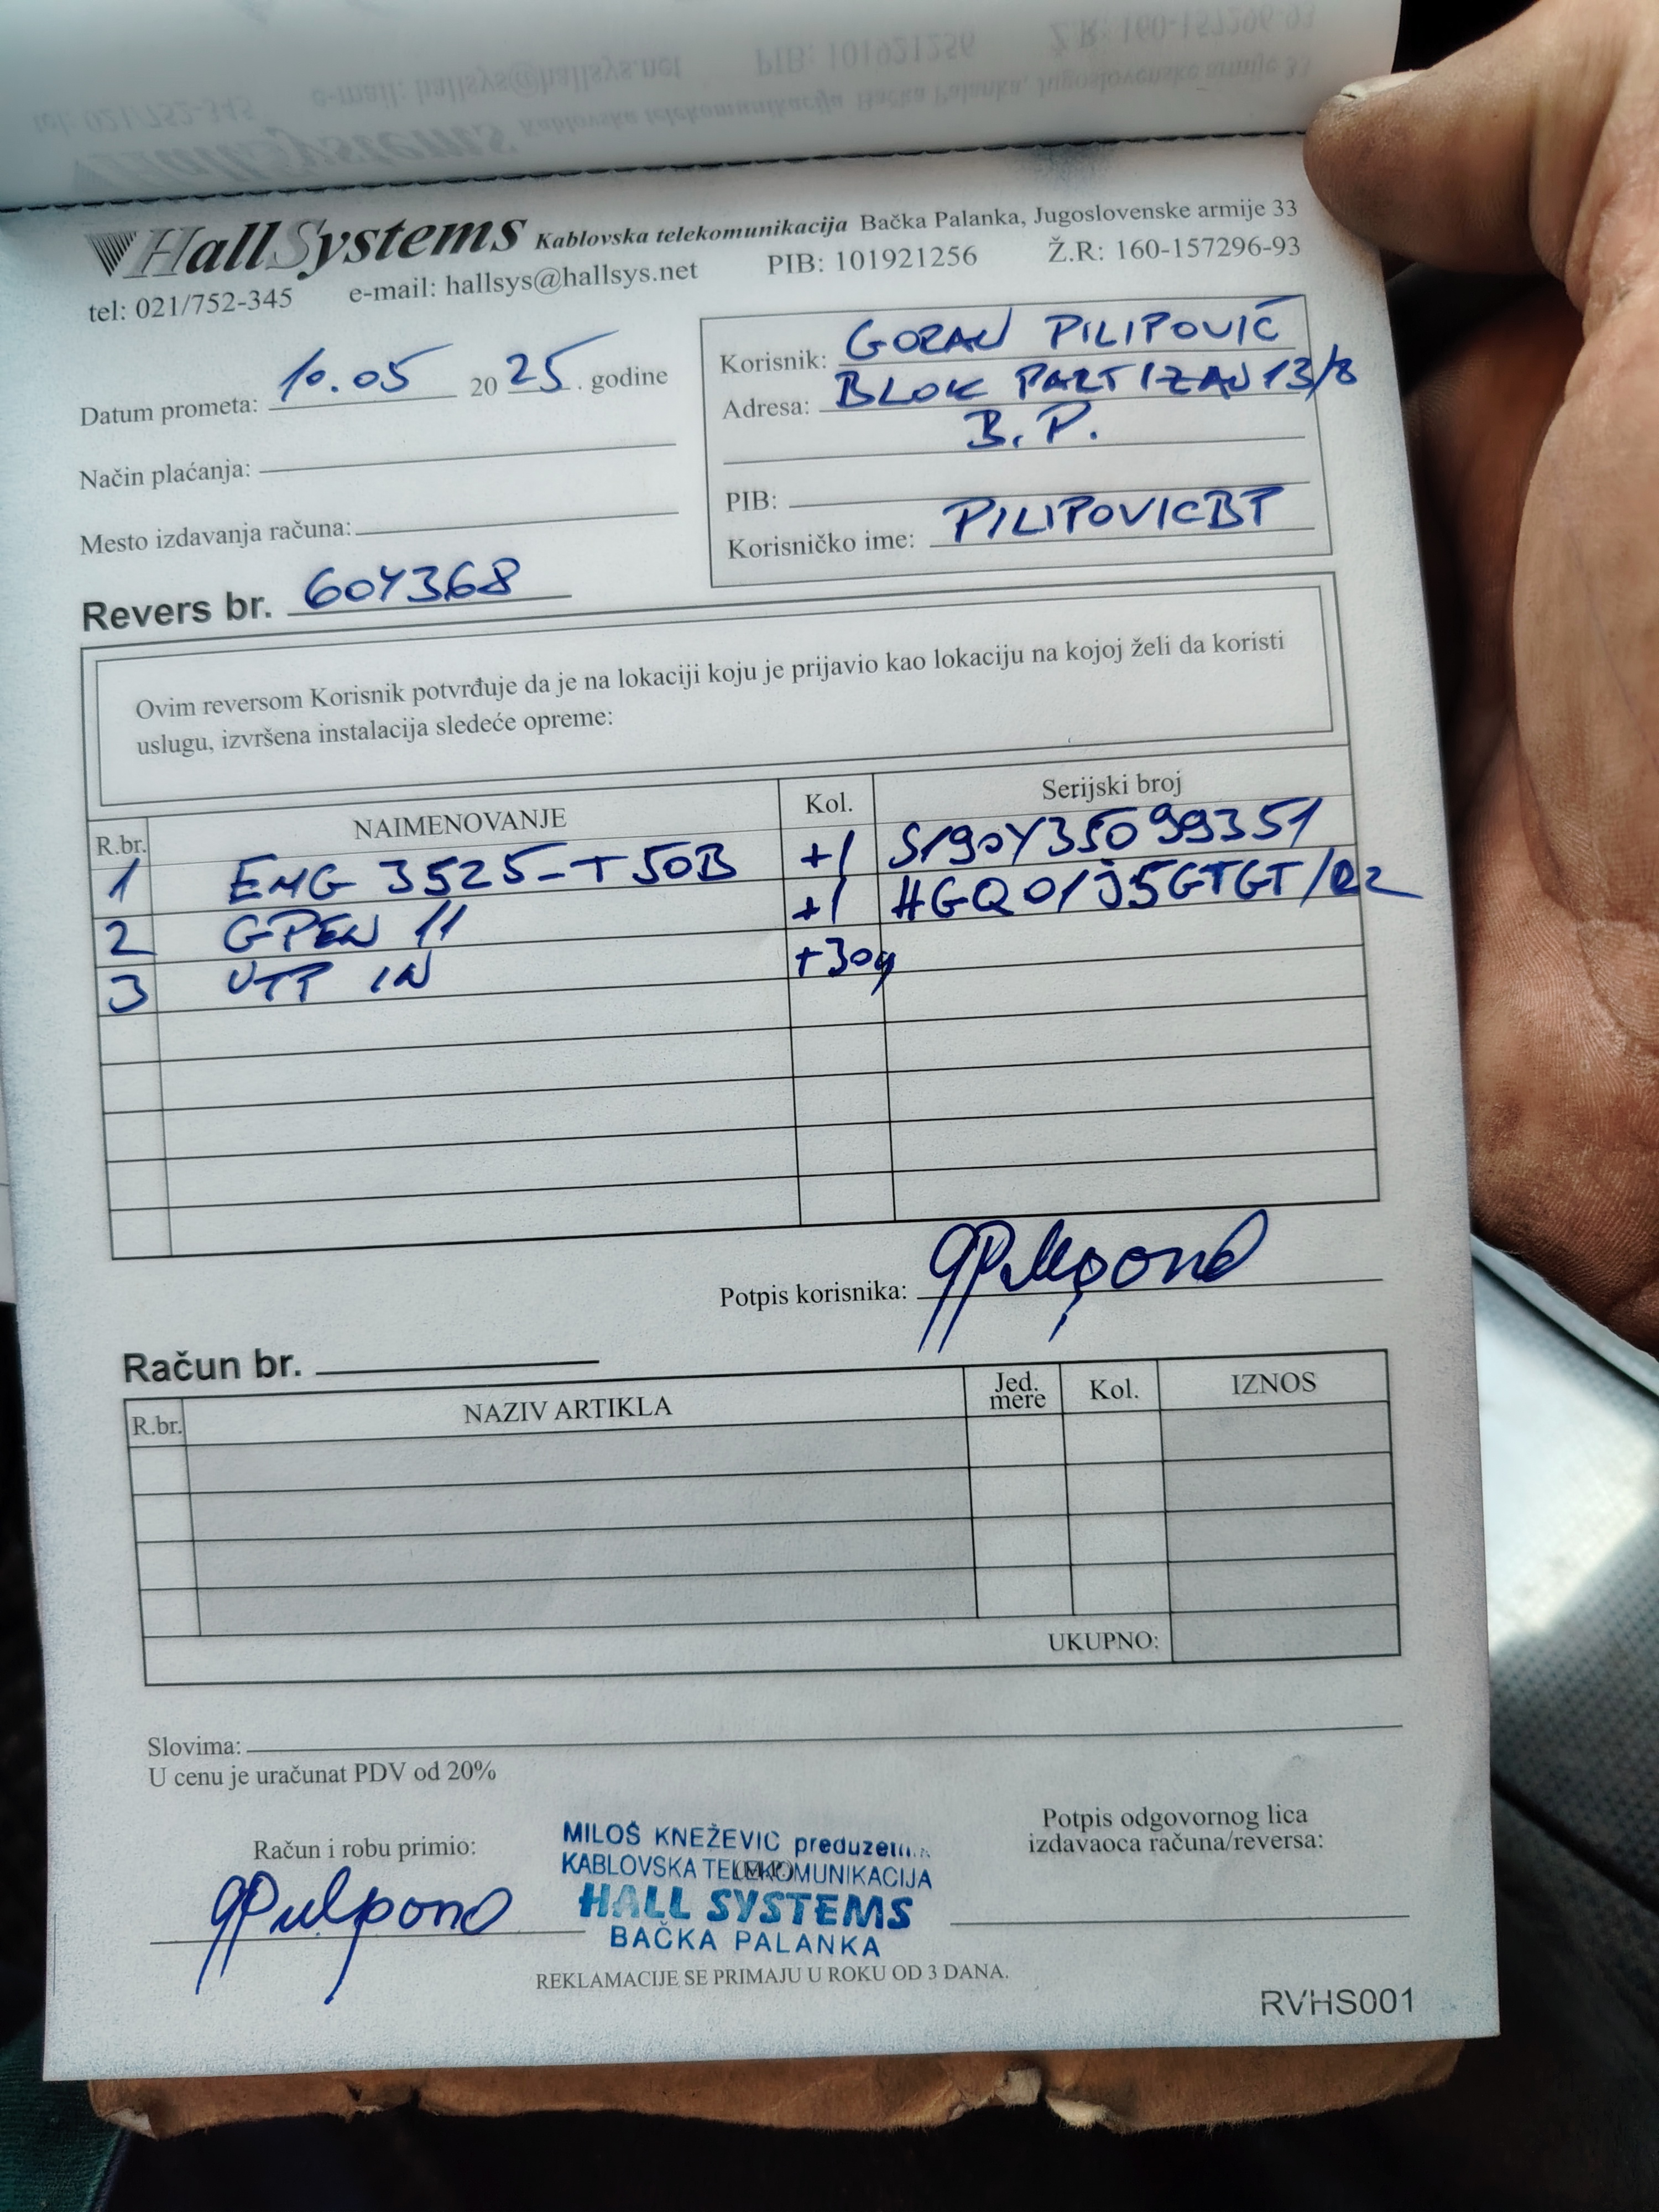 HallSystems Kablovska telekomunikacija Bačka Palanka, Jugoslovenske armije 33
tel: 021/752-345 e-mail: hallsys@hallsys.net PIB: 101921256 Ž.R: 160-157296-93
Datum prometa: 10.05 2025. godine
Način plaćanja:
Mesto izdavanja računa:
Revers br. 604368
Korisnik: GORAN PILIPOVIĆ
Adresa: BLOK PARTIZAN 13/8
B.P.
PIB:
Korisničko ime: PILIPOVICBP
Ovim reversom Korisnik potvrđuje da je na lokaciji koju je prijavio kao lokaciju na kojoj želi da koristi
uslugu, izvršena instalacija sledeće opreme:
R.br. NAIMENOVANJE Kol. Serijski broj
1 EMG 3525-T50B +1 S190Y35099351
2 GPEN 11 +1 HGQ01J5GTGT/R2
3 UTP IN +30m
Potpis korisnika:
Račun br.
R.br. NAZIV ARTIKLA Jed. mere Kol. IZNOS
UKUPNO:
Slovima:
U cenu je uračunat PDV od 20%
Račun i robu primio:
MILOŠ KNEŽEVIĆ
KABLOVSKA TELEKOMUNIKACIJA
HALL SYSTEMS
BAČKA PALANKA
Potpis odgovornog lica
izdavaoca računa/reversa:
REKLAMACIJE SE PRIMAJU U ROKU OD 3 DANA.
RVHS001